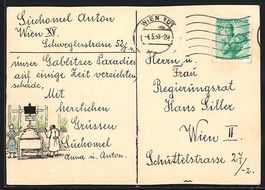 Süchomel Anton
Wien XV.
Schweglerstrasse 52/
unser Gablitzer Paradies
auf einige Zeit verzichten
schade.
Mit
herzlichen
Grüssen
Süchomel
Anna u. Anton.
WIEN
Herrn u
Frau
Regierungsrat
Hans Siller
Wien II.
Schüttelstrasse 27/-2.